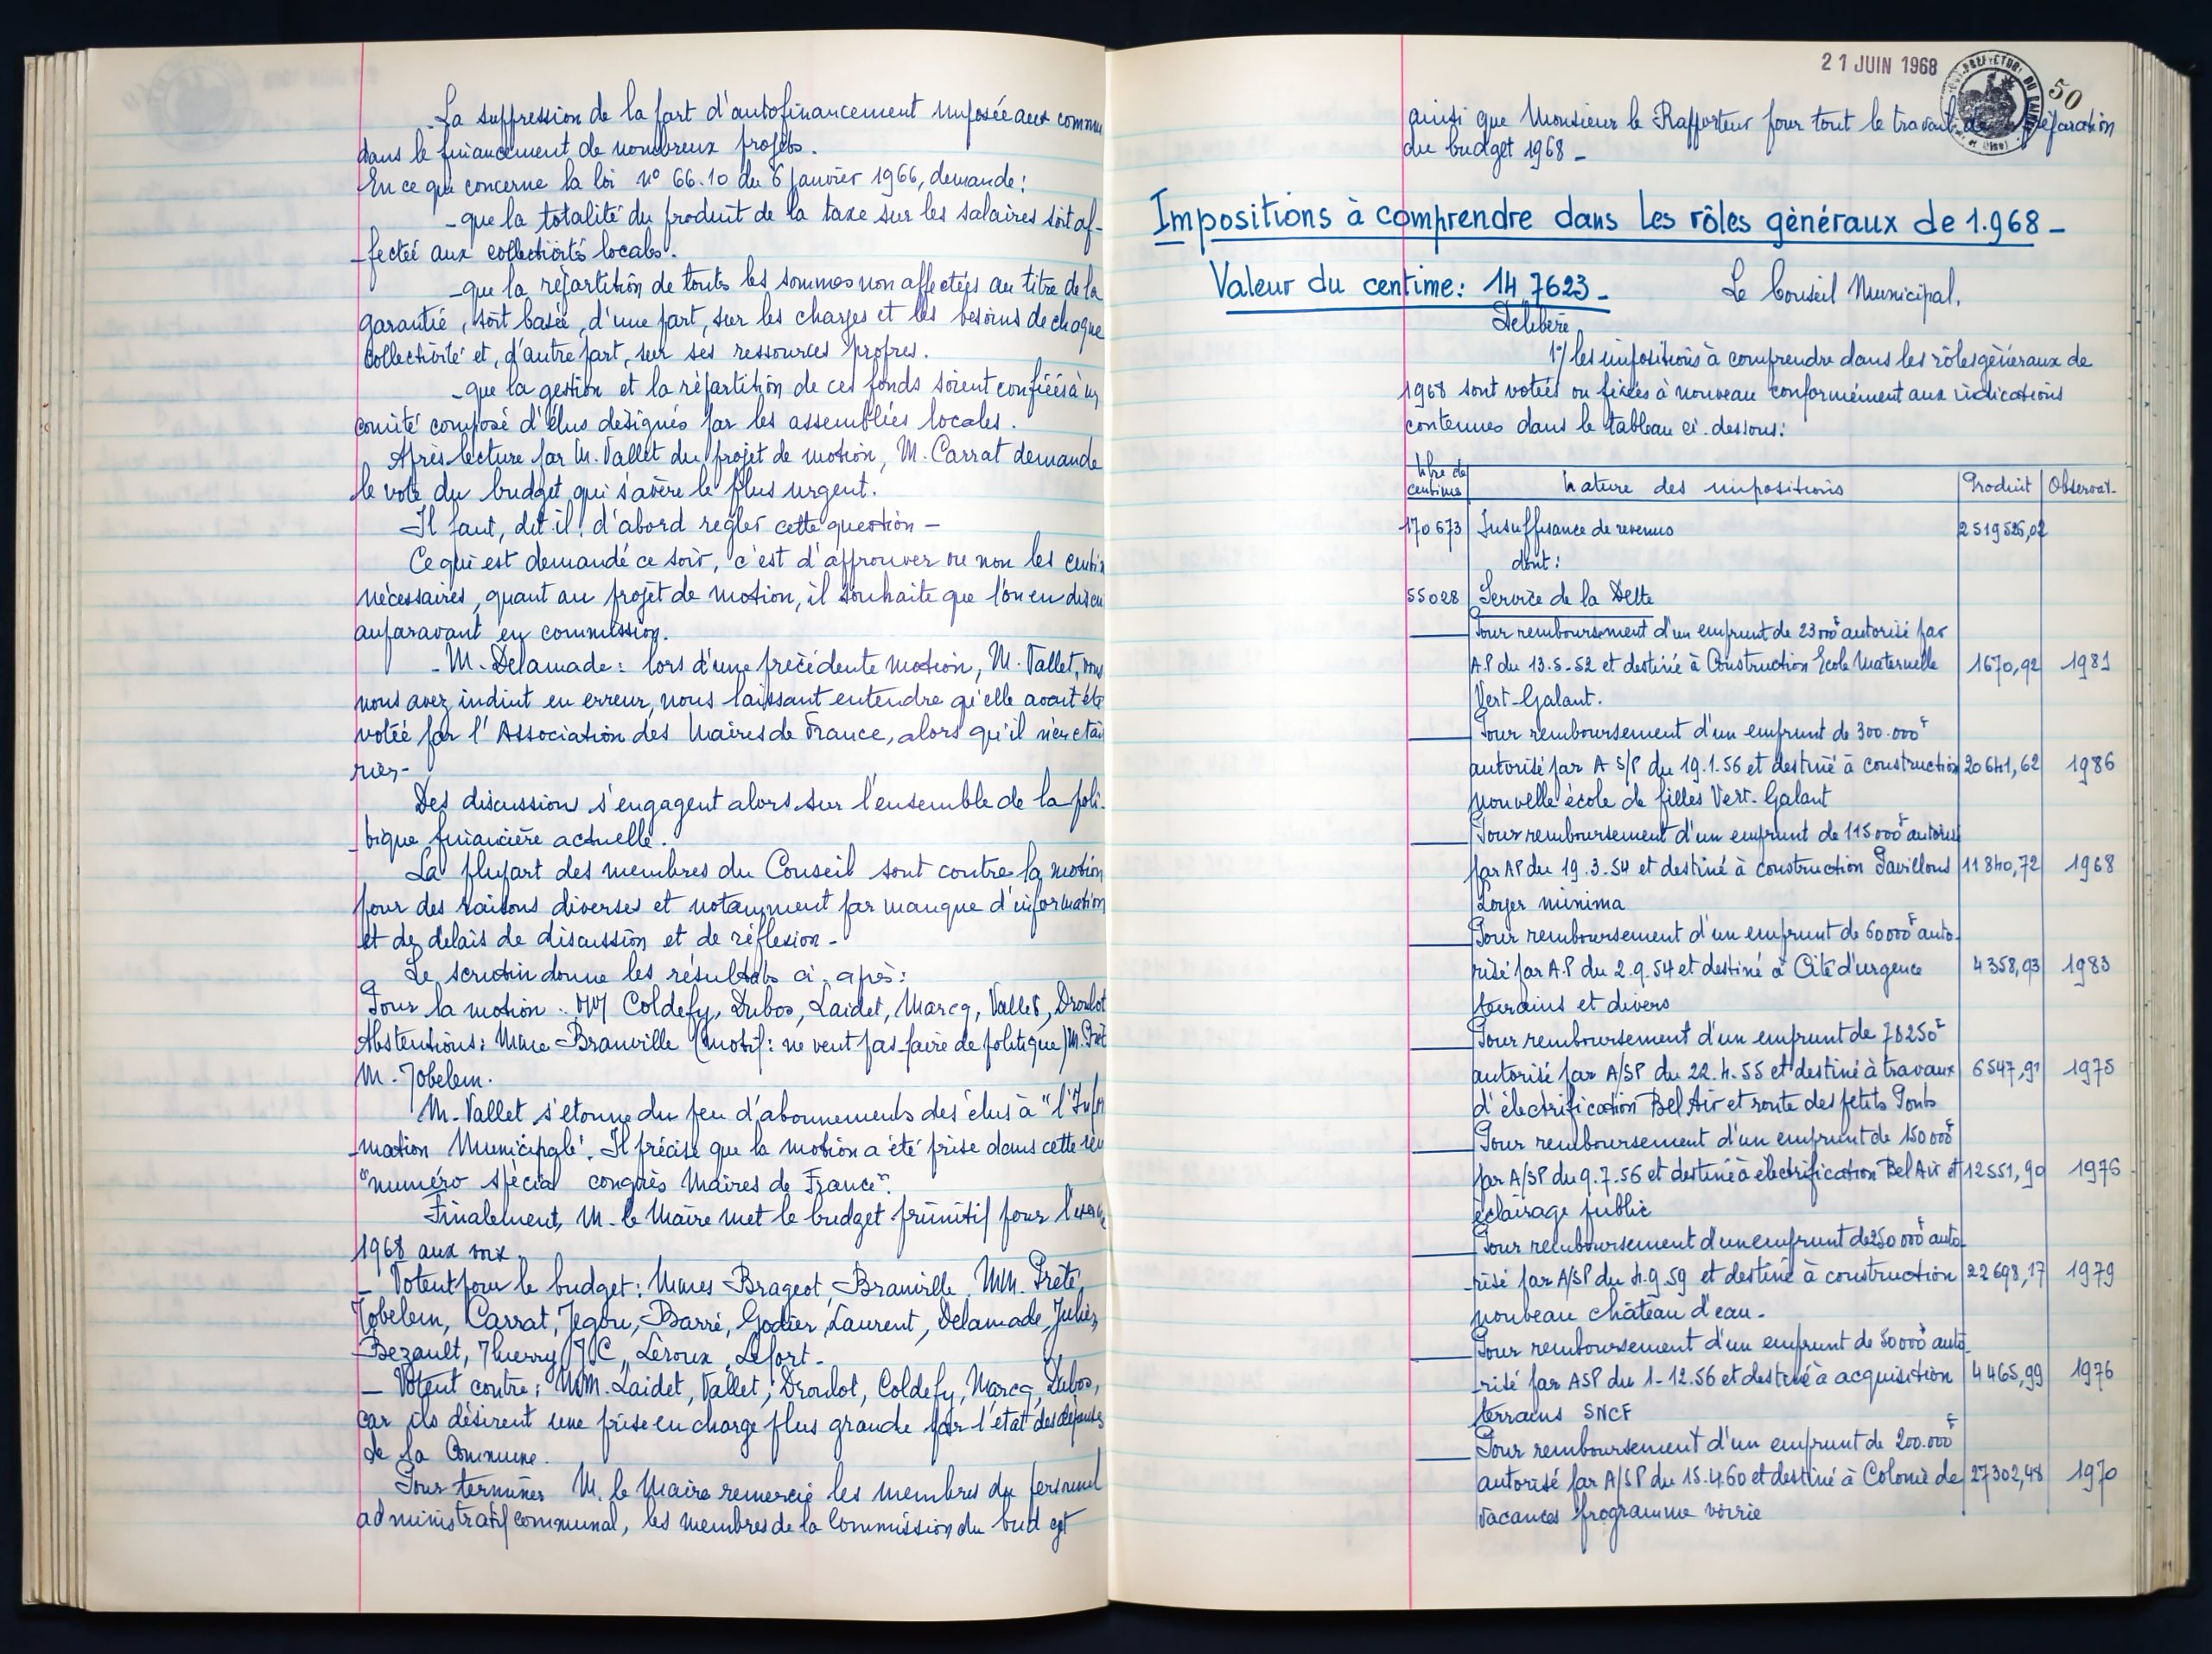 La suppression de la part d'autofinancement imposée aux commu
dans le financement de nombreux projets.
En ce qui concerne la loi n° 66.10 du 6 Janvier 1966, demande:
- que la totalité du produit de la taxe sur les salaires soit af-
-fectée aux collectivités locales.
- que la répartition de toutes les sommes non affectées au titre de la
garantie, soit basée, d'une part, sur les charges et les besoins de chaque
collectivité et, d'autre part, sur ses ressources propres.
- que la gestion et la répartition de ces fonds soient confiées à un
comité composé d'élus désignés par les assemblées locales.
Après lecture par M. Vallet du projet de motion, M. Carrat demande
le vote du budget qui s'avère le plus urgent.
Il faut, dit il, d'abord regler cette question -
Ce qui est demandé ce soir, c'est d'approuver ou non les centi
nécessaires, quant au projet de motion, il souhaite que l'on en discu
auparavant en commission.
- M. Delamade: lors d'une précédente motion, M. Vallet, vous
nous avez induit en erreur, nous laissant entendre qu'elle avait été
votée par l'Association des Maires de France, alors qu'il n'en était
rien-
Des discussions s'engagent alors sur l'ensemble de la poli-
-tique financière actuelle.
La plupart des membres du Conseil sont contre la motion
pour des raisons diverses et notamment par manque d'information
et de delais de discussion et de réflexion -
Le scrutin donne les résultats ci. après:
Pour la motion : MM Coldefy, Dubos, Laidet, Marcq, Vallet, Droulot
Abstentions: Mme Branville (motif: ne veut pas faire de politique) M. Prêt
M. Jobelem.
M. Vallet s'etonne du peu d'abonnements des élus à "l'Infor
-mation Municipale". Il précise que la motion a été prise dans cette rev
"numéro spécial congrès Maires de France".
Finalement, M. le Maire met le budget primitif pour l'exercice
1968 aux voix.
- Votent pour le budget: Mmes Brageot, Branville, MM. Prêté,
Jobelem, Carrat, Jegou, Barré, Godier, Laurent, Delamade, Julien,
Bezault, Thierry, JC, Leroux, Lefort -
- Votent contre: MM. Laidet, Vallet, Droulot, Coldefy, Marcq, Dubos,
car ils désirent une prise en charge plus grande par l'état des dépenses
de la Commune.
Pour terminer M. le Maire remercie les membres du personnel
administratif communal, les membres de la Commission du budget
21 JUIN 1968
50
ainsi que Monsieur le Rapporteur pour tout le travail de préparation
du budget 1968 -
Impositions à comprendre dans les rôles généraux de 1.968 -
Valeur du centime: 14 7623 -
Le Conseil Municipal,
Délibère
1°/ les impositions à comprendre dans les rôles généraux de
1968 sont votées ou fixées à nouveau conformément aux indications
contenues dans le tableau ci. dessous:
Nbre de centimes | Nature des impositions | Produit | Observat-
170 673 | Insuffisance de revenus | 2 519 526,02
dont:
55028 | Service de la Dette
Pour remboursement d'un emprunt de 23 000F autorisé par
A.P du 13.5-52 et destiné à Construction Ecole Maternelle | 1670,92 | 1981
Vert-Galant.
Pour remboursement d'un emprunt de 300.000F
autorisé par A S/P du 19.1.56 et destiné à construction | 20 641,62 | 1986
nouvelle école de filles Vert-Galant
Pour remboursement d'un emprunt de 115 000F autorisé
par AP du 19.3.54 et destiné à construction Pavillons | 11 840,72 | 1968
Loyer minima
Pour remboursement d'un emprunt de 60 000F auto-
risé par A.P du 2.9.54 et destiné à Cité d'urgence | 4 358,93 | 1983
terrains et divers
Pour remboursement d'un emprunt de 78 250F
autorisé par A/SP du 22.4.55 et destiné à travaux | 6 547,91 | 1975
d'électrification Bel Air et route des petits Ponts
Pour remboursement d'un emprunt de 150 000F
par A/SP du 9.7.56 et destiné à électrification Bel Air et | 12 551,90 | 1976
éclairage public
Pour remboursement d'un emprunt de 250 000F auto-
-risé par A/SP du 4.9.59 et destiné à construction | 22 698,17 | 1979
nouveau château d'eau -
Pour remboursement d'un emprunt de 50 000F auto-
-risé par ASP du 1-12.56 et destiné à acquisition | 4 465,99 | 1976
terrains SNCF
Pour remboursement d'un emprunt de 200.000F
autorisé par A/SP du 15.4.60 et destiné à Colonie de | 27 302,48 | 1970
vacances programme voirie